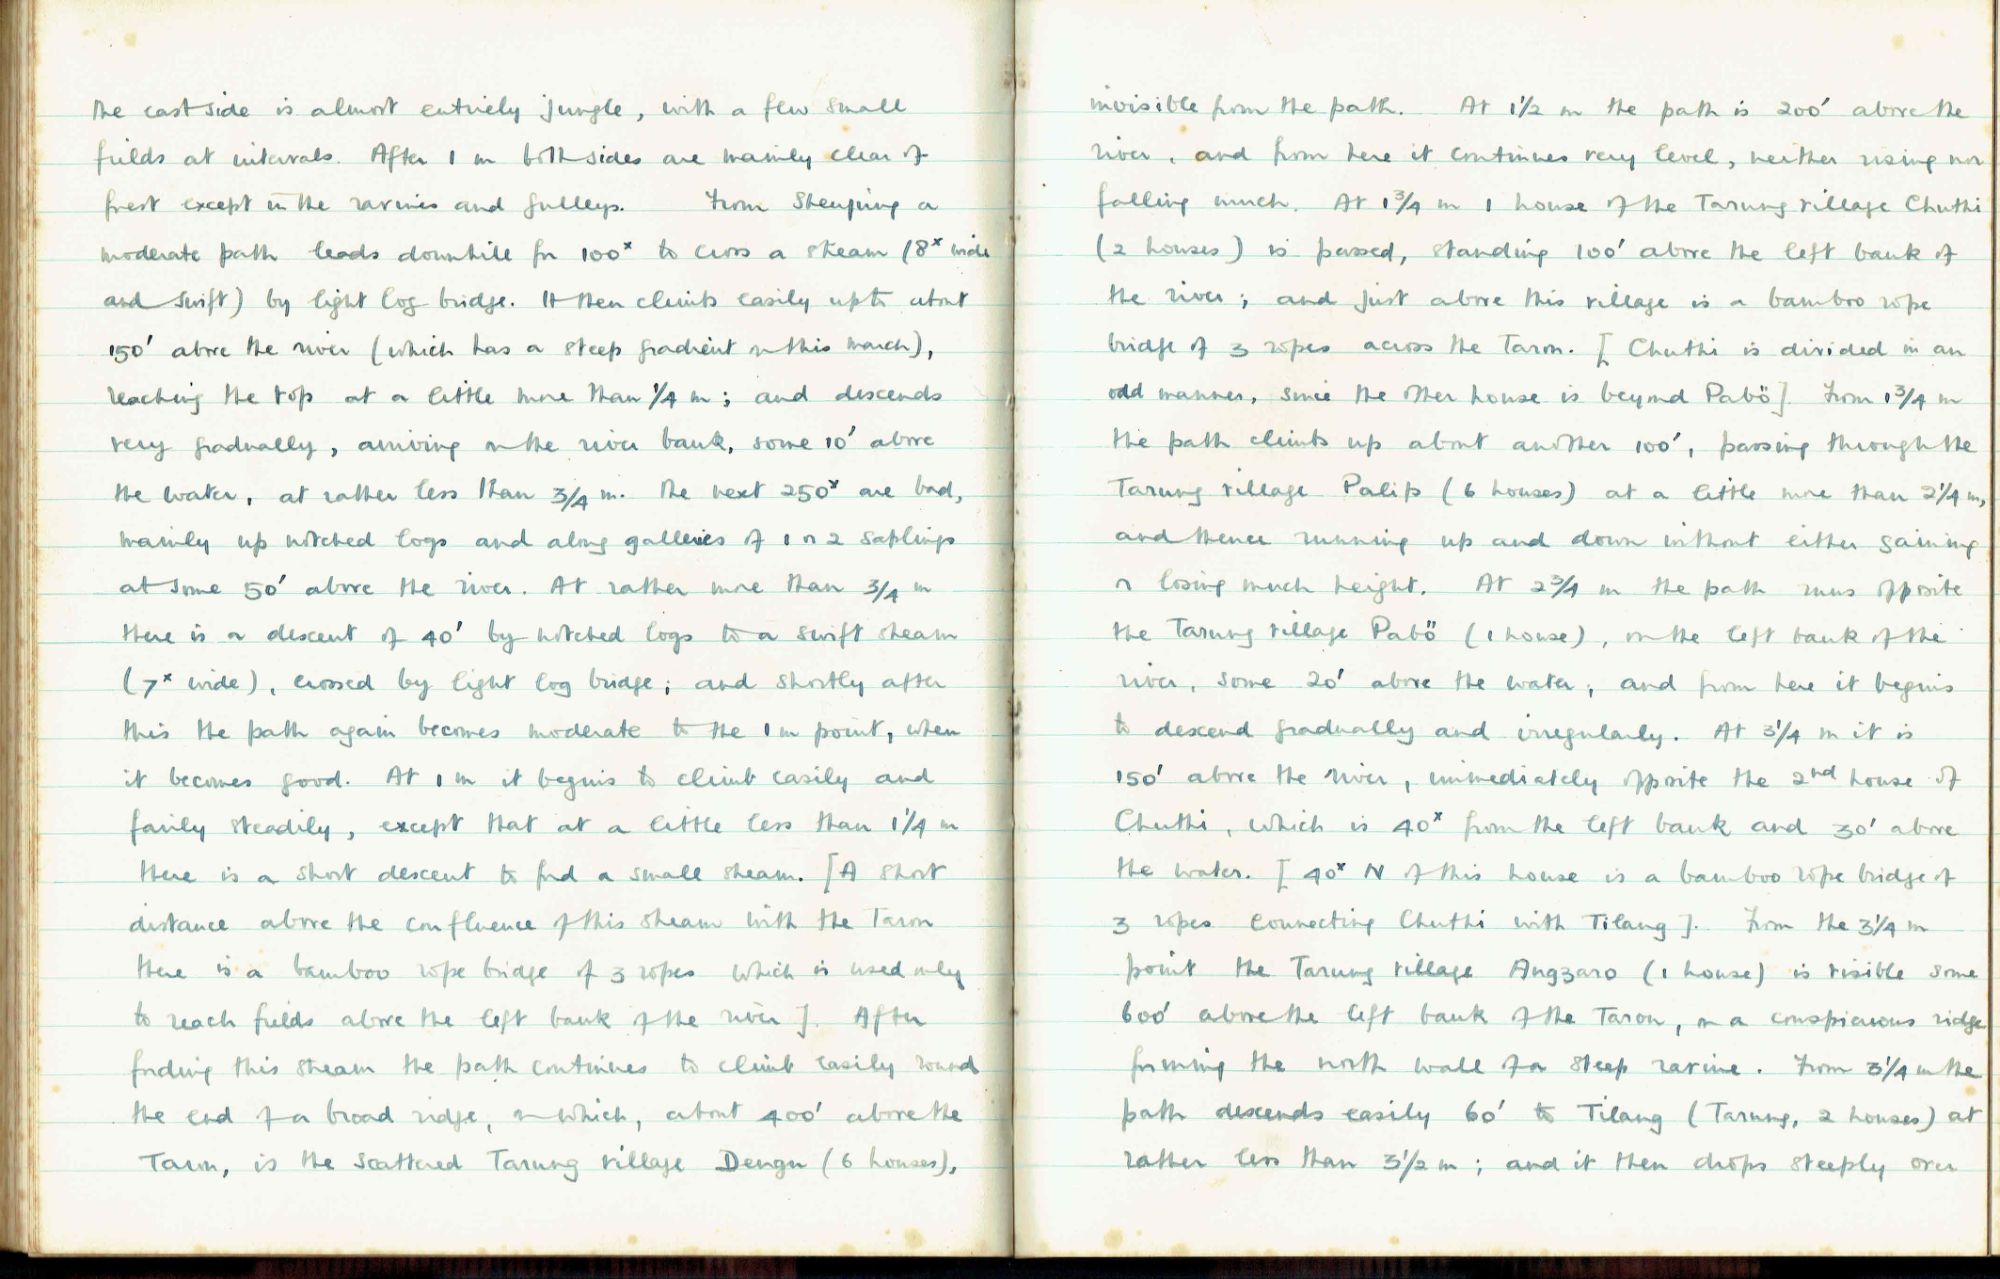 the east side is almost entirely jungle, with a few small
fields at intervals. After 1 m both sides are mainly clear of
forest except in the ravines and gulleys. From Shenjing a
moderate path leads downhill for 100ˣ to cross a stream (8ˣ wide
and swift) by light log bridge. It then climbs easily up to about
150' above the river (which has a steep gradient on this march),
reaching the top at a little more than 1/4 m; and descends
very gradually, arriving on the river bank, some 10' above
the water, at rather less than 3/4 m. The next 250ˣ are bad,
mainly up notched logs and along galleries of 1 or 2 saplings
at some 50' above the river. At rather more than 3/4 m
there is a descent of 40' by notched logs to a swift stream
(7ˣ wide), crossed by light log bridge; and shortly after
this the path again becomes moderate to the 1 m point, when
it becomes good. At 1 m it begins to climb easily and
fairly steadily, except that at a little less than 1 1/4 m
there is a short descent to ford a small stream. [A short
distance above the confluence of this stream with the Taron
there is a bamboo rope bridge of 3 ropes which is used only
to reach fields above the left bank of the river]. After
fording this stream the path continues to climb easily round
the end of a broad ridge, on which, about 400' above the
Taron, is the scattered Tarung village Dengu (6 houses),
invisible from the path. At 1 1/2 m the path is 200' above the
river, and from here it continues very level, neither rising nor
falling much. At 1 3/4 m 1 house of the Tarung village Chuthi
(2 houses) is passed, standing 100' above the left bank of
the river; and just above this village is a bamboo rope
bridge of 3 ropes across the Taron. [Chuthi is divided in an
odd manner, since the other house is beyond Pabö]. From 1 3/4 m
the path climbs up about another 100', passing through the
Tarung village Palip (6 houses) at a little more than 2 1/4 m,
and thence running up and down without either gaining
or losing much height. At 2 3/4 m the path runs opposite
the Tarung village Pabö (1 house), on the left bank of the
river, some 20' above the water; and from here it begins
to descend gradually and irregularly. At 3 1/4 m it is
150' above the river, immediately opposite the 2nd house of
Chuthi, which is 40ˣ from the left bank and 30' above
the water. [40ˣ N of this house is a bamboo rope bridge of
3 ropes connecting Chuthi with Tilang]. From the 3 1/4 m
point the Tarung village Angzaro (1 house) is visible some
600' above the left bank of the Taron, on a conspicuous ridge
forming the north wall of a steep ravine. From 3 1/4 m the
path descends easily 60' to Tilang (Tarung, 2 houses) at
rather less than 3 1/2 m; and it then drops steeply over